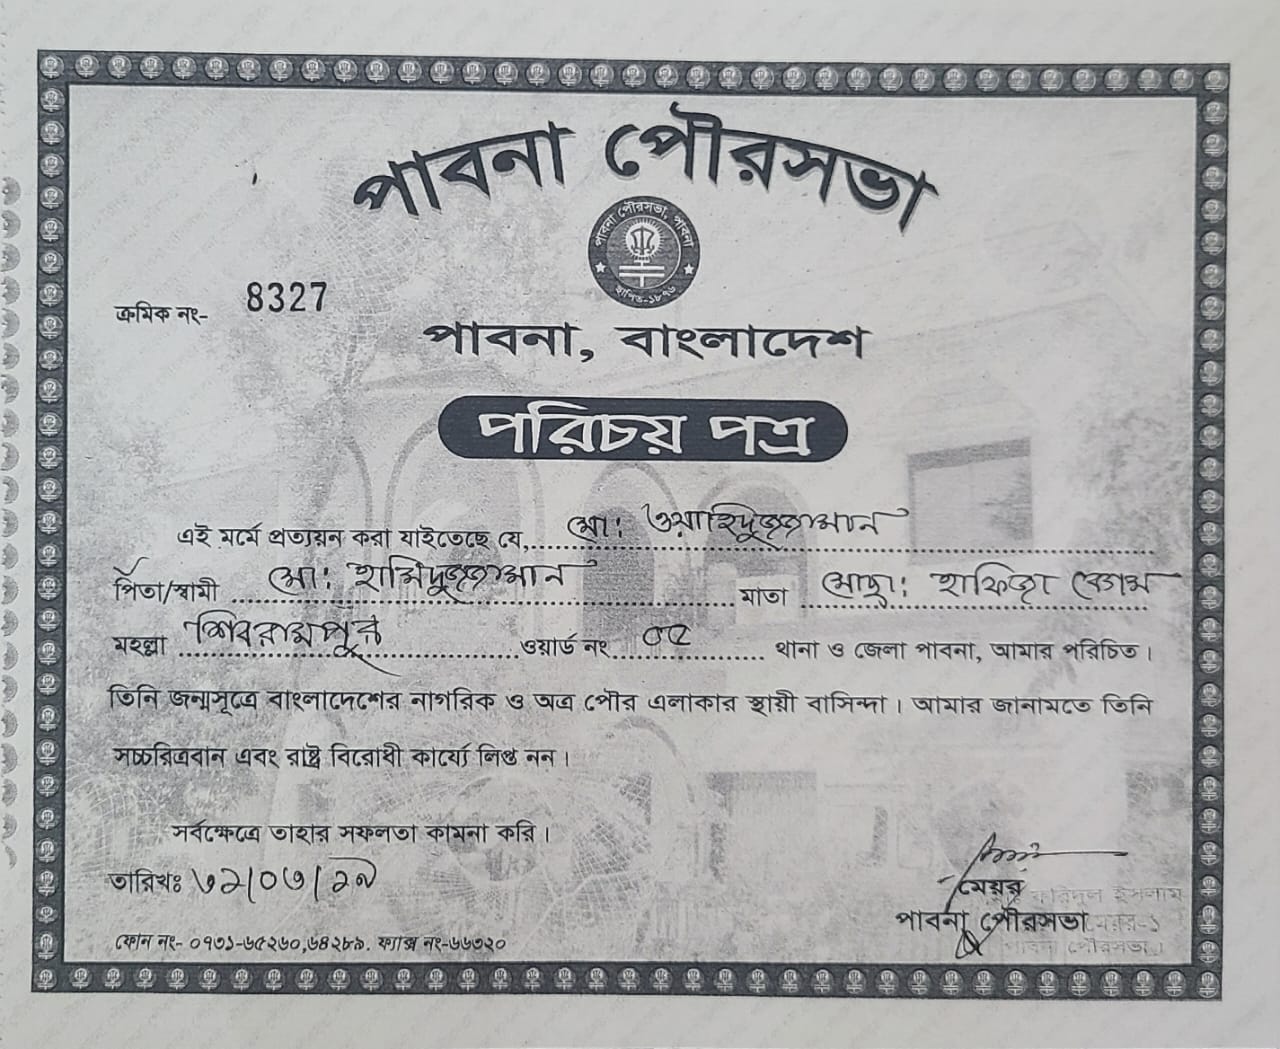 পাবনা পৌরসভা
পাবনা পৌরসভা, পাবনা
স্থাপিত-১৮৭৬
ক্রমিক নং- 8327
পাবনা, বাংলাদেশ
পরিচয় পত্র
এই মর্মে প্রত্যয়ন করা যাইতেছে যে, মো: ওয়াহিদুজ্জামান
পিতা/স্বামী মো: হামিদুজ্জামান মাতা মোছা: হাফিজা বেগম
মহল্লা শিবরামপুর ওয়ার্ড নং ০৫ থানা ও জেলা পাবনা, আমার পরিচিত।
তিনি জন্মসূত্রে বাংলাদেশের নাগরিক ও অত্র পৌর এলাকার স্থায়ী বাসিন্দা। আমার জানামতে তিনি
সচ্চরিত্রবান এবং রাষ্ট্র বিরোধী কার্য্যে লিপ্ত নন।
সর্বক্ষেত্রে তাহার সফলতা কামনা করি।
তারিখঃ
মেয়র ফরিদুল ইসলাম
পাবনা পৌরসভা মেয়র-১
পাবনা পৌরসভা।
ফোন নং- ০৭৩১-৬৫২৬০,৬৪২৮৯. ফ্যাক্স নং-৬৬৩২০